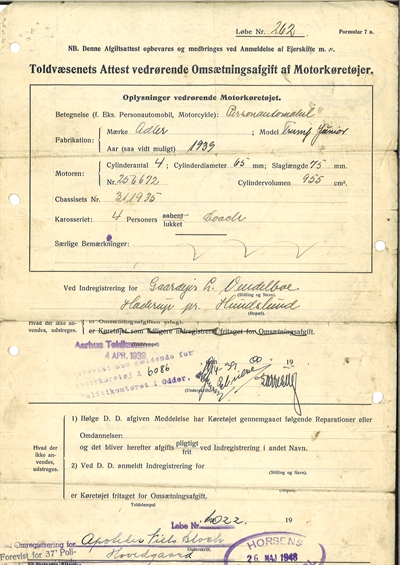 Løbe Nr. 262 Formular 7 a.
NB. Denne Afgiftsattest opbevares og medbringes ved Anmeldelse af Ejerskifte m. v.
Toldvæsenets Attest vedrørende Omsætningsafgift af Motorkøretøjer.
Oplysninger vedrørende Motorkøretøjet.
Betegnelse (f. Eks. Personautomobil, Motorcykle): Personautomobil
Fabrikation: Mærke Adler ; Model Trumf Junior
Aar (saa vidt muligt) 1939
Motoren: Cylinderantal 4 ; Cylinderdiameter 65 mm; Slaglængde 75 mm.
Nr. 256672 Cylindervolumen 955 cm³.
Chassisets Nr. 311935
Karosseriet: 4 Personers aabent lukket Coach
Særlige Bemærkninger:
Ved Indregistrering for Gaardejer L. Overdelboe
(Stilling og Navn).
Haderup pr. Hundslund
(Bopæl).
Hvad der ikke anvendes, udstreges.
er Omsætningsafgiften erlagt.
er Køretøjet som tidligere indregistreret fritaget for Omsætningsafgift.
Aarhus Toldkammer
4 APR. 1939 19
Forevist ved Anmeldelse for
Motorkøretøj X 6086
Politikontoret i Odder,
Hvad der ikke anvendes, udstreges.
1) Ifølge D. D. afgiven Meddelelse har Køretøjet gennemgaaet følgende Reparationer eller
Omdannelser:
og det bliver herefter afgifts pligtig frit ved Indregistrering i andet Navn.
2) Ved D. D. anmeldt Indregistrering for
(Stilling og Navn).
er Køretøjet fritaget for Omsætningsafgift.
Toldstempel
Løbe Nr. 1022. 19
ved Omregistrering for Apoteker Niels Bloch
Underskrift.
Forevist for 37' Poli- Hovedgaard
HORSENS
26 MAJ 1948